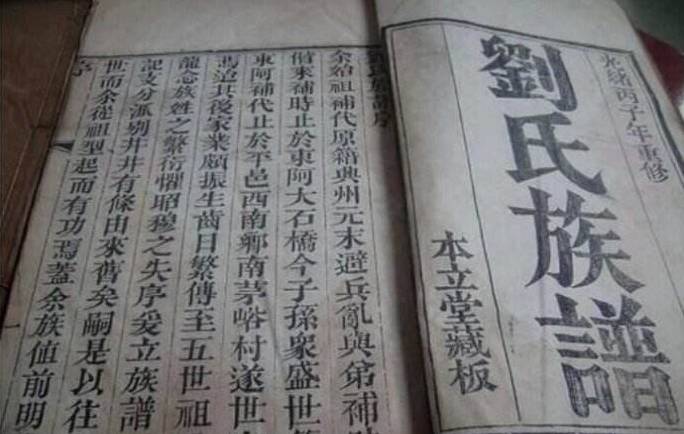 光緒丙子年重修
劉氏族譜
本立堂藏板
氏族譜序
余始祖補代原籍興州元末避兵亂與弟補
偕來補時止於東阿大石橋今子孫衆盛世
東阿補代止於平邑西南鄉南茅峪村遂世
焉迨其後家業頗振生齒日繁傳至五世祖
龍念族姓之繁衍懼昭穆之失序爰立族譜
記支分派別井井有條由來舊矣嗣是以往
世而余從祖型起而有功焉蓋余族值前明